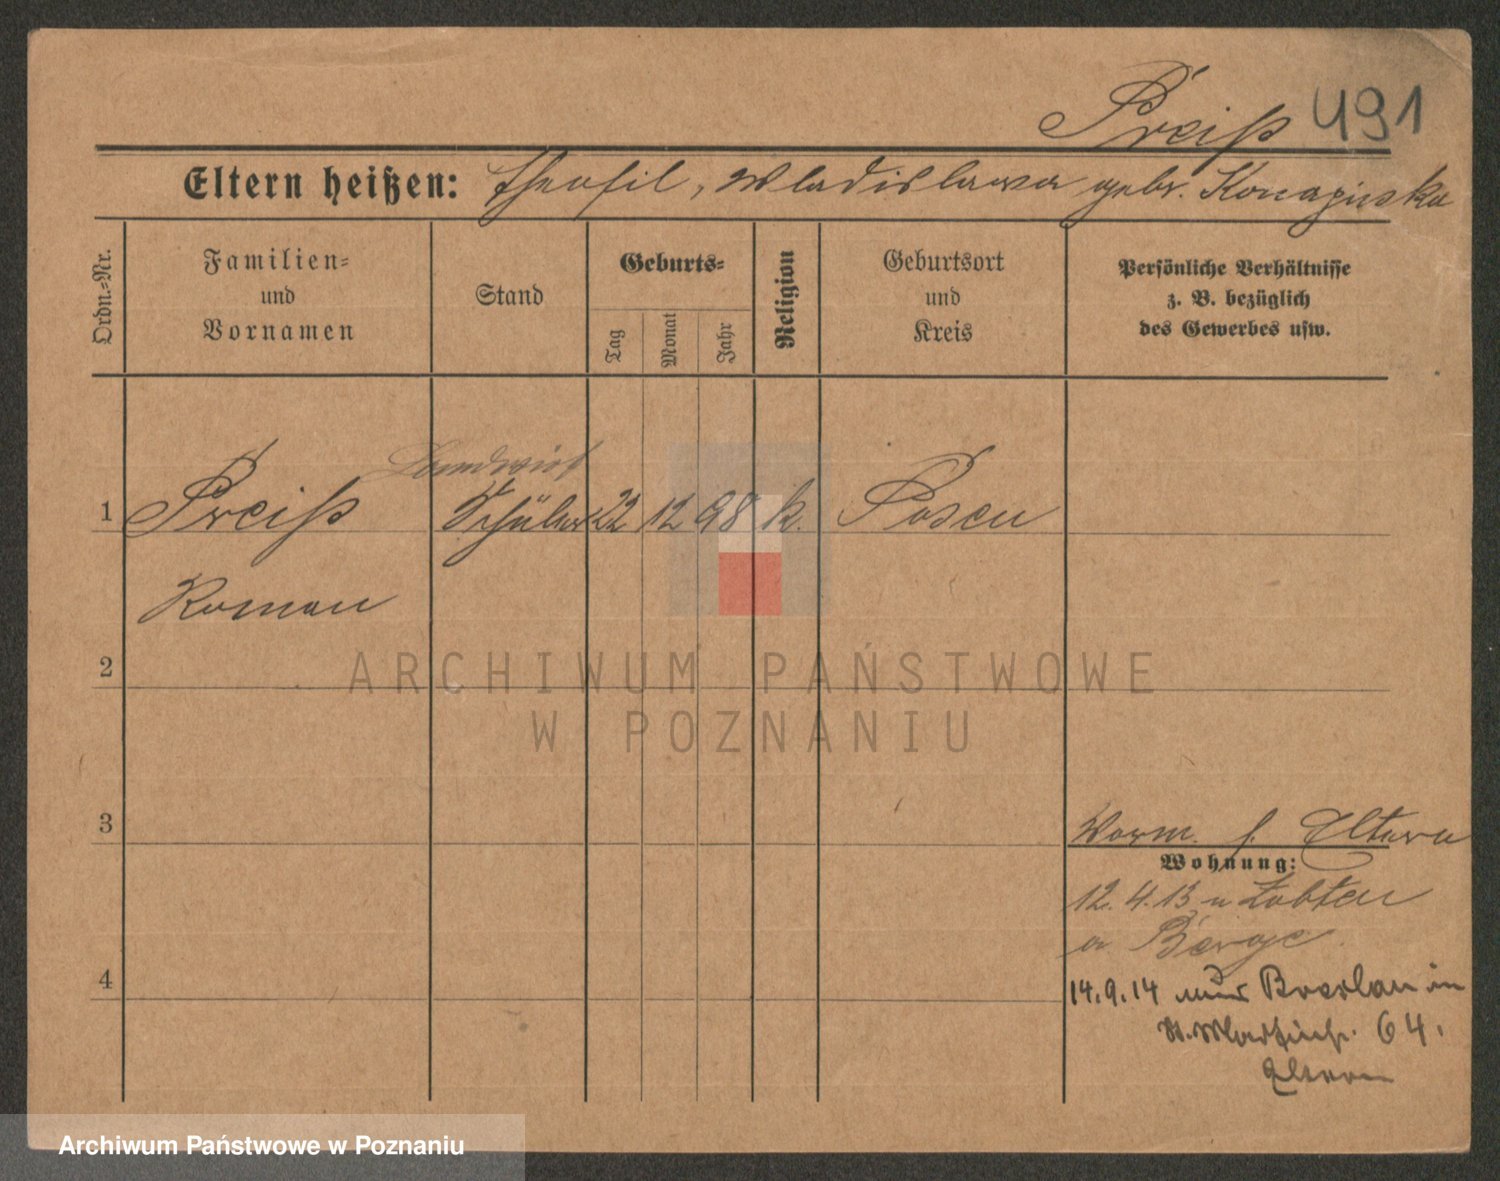 Preiß 491
Eltern heißen: Theofil, Wladislawa gebr. Konaginska
Ordn.-Nr.
Familien-
und
Vornamen
Stand
Geburts-
Tag
Monat
Jahr
Religion
Geburtsort
und
Kreis
Persönliche Verhältnisse
z. B. bezüglich
des Gewerbes usw.
Landwirt
1 Preiß Schüler 22 12 98 k. Posen
Roman
2
3
4
Vorm. s. Eltern
Wohnung:
12.4.13 n Zobten
a Berge
14.9.14 Breslau in
St. Martinstr. 64.
Eltern
ARCHIWUM PAŃSTWOWE
W POZNANIU
Archiwum Państwowe w Poznaniu